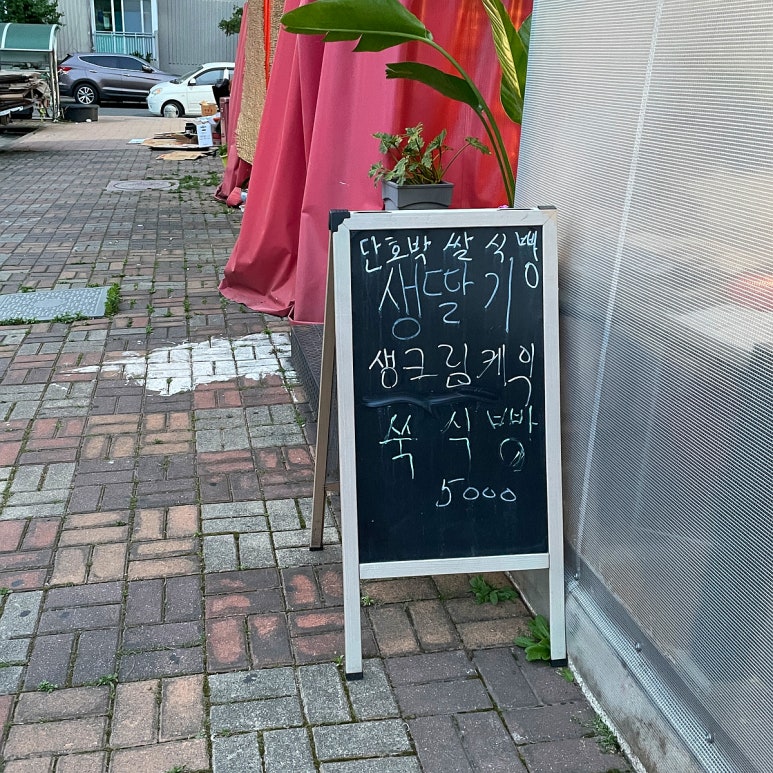 단호박 쌀 식빵
생딸기
생크림케익
쑥 식빵
5000